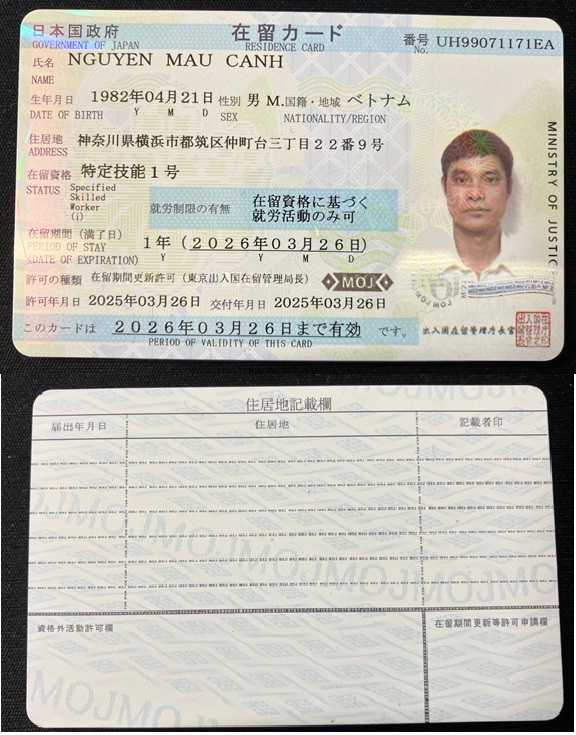 日本国政府 在留カード 番号 UH99071171EA
GOVERNMENT OF JAPAN RESIDENCE CARD No.
氏名 NGUYEN MAU CANH
NAME
生年月日 1982年04月21日 性別 男 M. 国籍・地域 ベトナム
DATE OF BIRTH Y M D SEX NATIONALITY/REGION
住居地 神奈川県横浜市都筑区仲町台三丁目22番9号
ADDRESS
在留資格 特定技能1号
STATUS Specified
Skilled
Worker
(i)
就労制限の有無 在留資格に基づく
就労活動のみ可
在留期間(満了日) 1年(2026年03月26日)
PERIOD OF STAY Y Y M D
(DATE OF EXPIRATION)
許可の種類 在留期間更新許可(東京出入国在留管理局長) MOJ
許可年月日 2025年03月26日 交付年月日 2025年03月26日
このカードは 2026年03月26日まで有効 です。
PERIOD OF VALIDITY OF THIS CARD
出入国在留管理庁長官
MINISTRY OF JUSTICE
住居地記載欄
届出年月日 住居地 記載者印
資格外活動許可欄 在留期間更新等許可申請欄
MOJMOJMOJMOJ
MOJMOJ